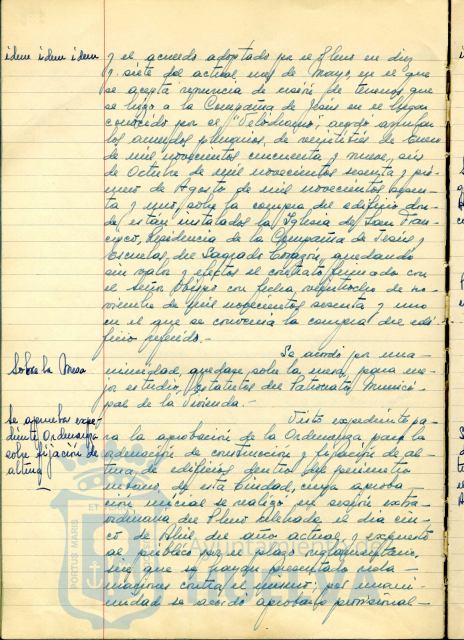 idem idem idem
y el acuerdo adoptado por el Pleno en diez
y siete del actual mes de Mayo, en el que
se acepta renuncia de cesión de terrenos que
se hizo a la Compañia de Jesús en el lugar
conocido por el "Velódromo", acordó anular
los acuerdos plenarios, de veintitrés de Enero
de mil novecientos cincuenta y nueve, seis
de Octubre de mil novecientos sesenta y pri-
mero de Agosto de mil novecientos sesen-
ta y uno, sobre la compra del edificio don-
de están instalados la Iglesia de San Fran-
cisco, Residencia de la Compañia de Jesús y
Escuelas del Sagrado Corazón, quedando
sin valor y efectos el contrato firmado con
el Señor Obispo con fecha veintiocho de no-
viembre de mil novecientos sesenta y uno
en el que se convenia la compra del edi-
ficio referido.-
Sobre la Mesa
Se acordó por una-
nimidad, quedase sobre la mesa, para me-
jor estudio, Estatutos del Patronato Munici-
pal de la Vivienda.-
Se aprueba expe-
diente Ordenanza
sobre fijación de
altura
Visto expediente pa-
ra la aprobación de la Ordenanza, para la
de construcción y fijación de al-
tura de edificios dentro del perimetro
urbano de esta Ciudad, cuya aproba-
ción inicial se realizó en sesión extra-
ordinaria del Pleno celebrada el dia cin-
co de Abril del año actual, y expuesto
al público por el plazo reglamentario,
sin que se hayan presentado recla-
maciones contra el mismo; por unani-
midad se acordó aprobarlo provisional-
PORTUS MARIS
ET
Ayuntamiento de
HUELVA